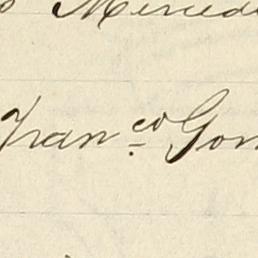 Merced
Fran.co Gon